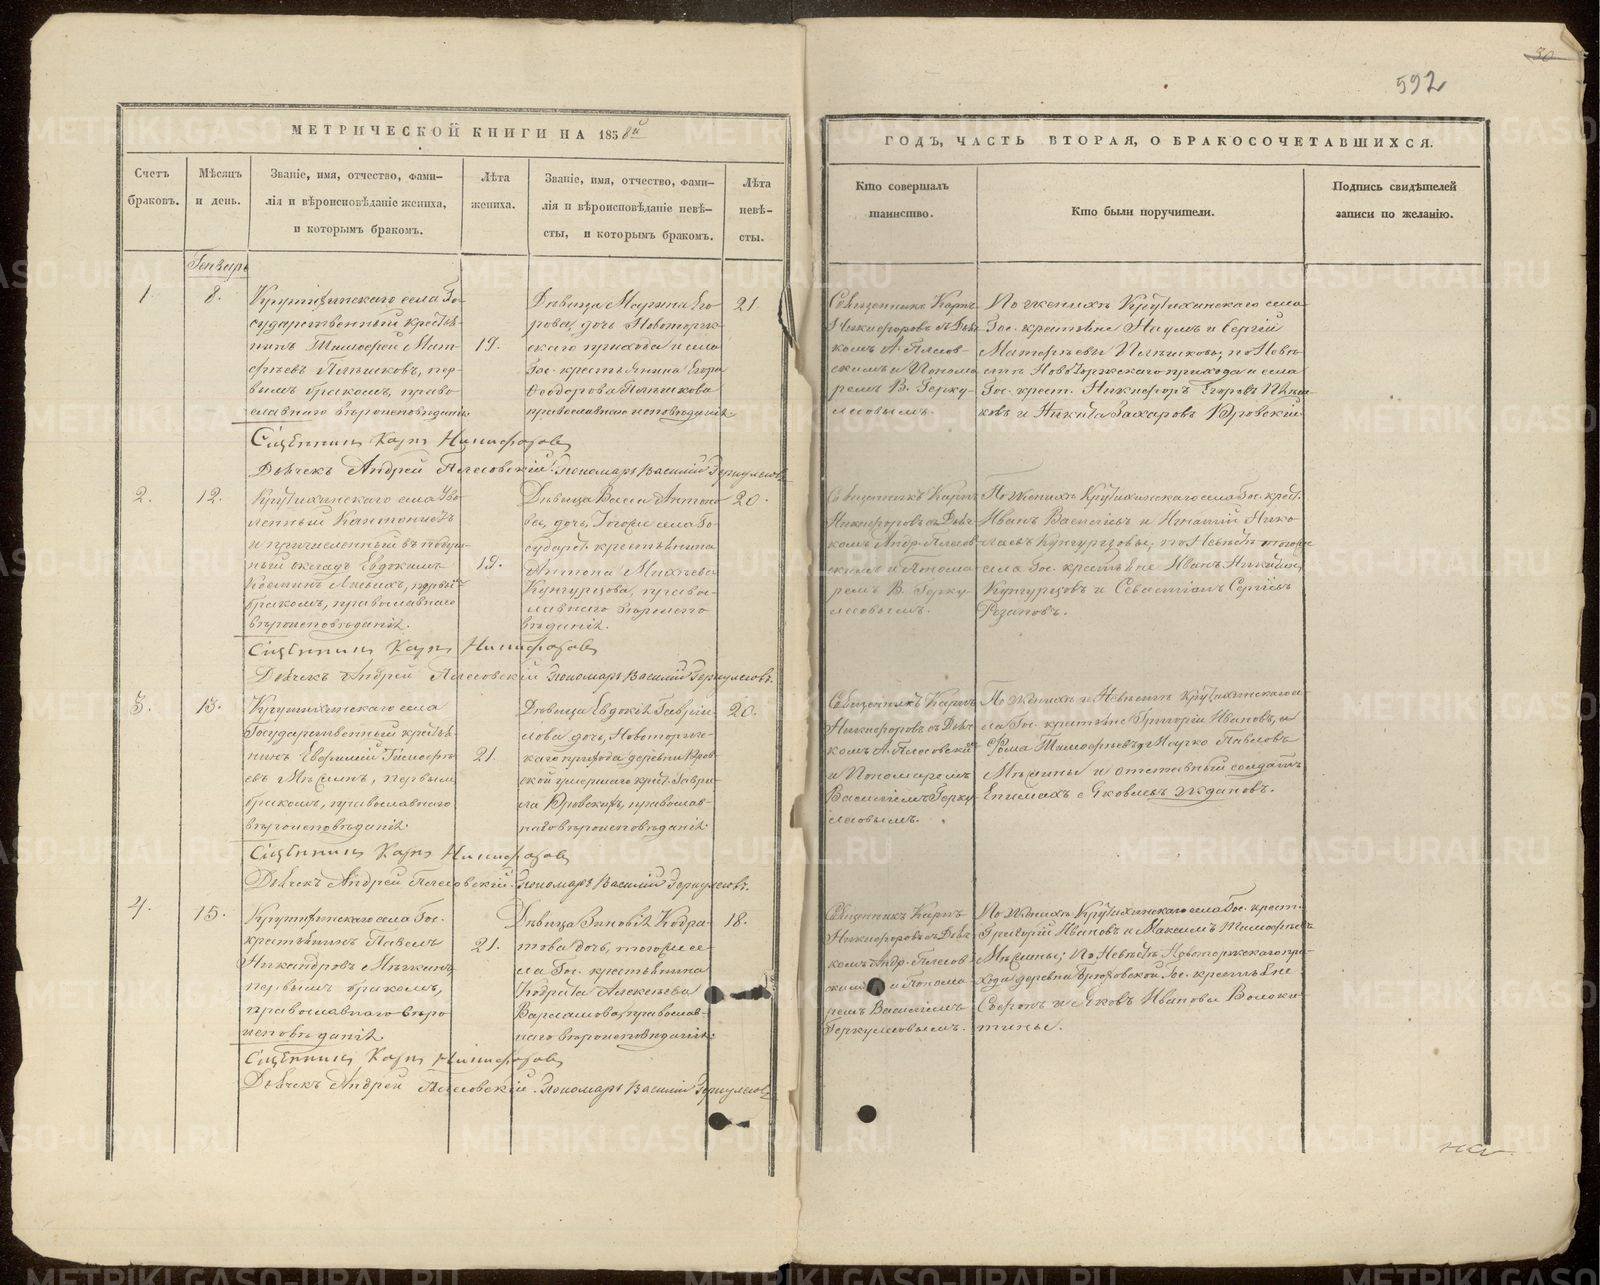 592
МЕТРИЧЕСКОЙ КНИГИ НА 1858й
ГОДЪ, ЧАСТЬ ВТОРАЯ, О БРАКОСОЧЕТАВШИХСЯ.
Счетъ
браковъ.
Мѣсяцъ
и день.
Званіе, имя, отчество, фами-
лія и вѣроисповѣданіе жениха,
и которымъ бракомъ.
Лѣта
жениха.
Званіе, имя, отчество, фами-
лія и вѣроисповѣданіе невѣ-
сты, и которымъ бракомъ.
Лѣта
невѣ-
сты.
Кто совершалъ
таинство.
Кто были поручители.
Подпись свидѣтелей
записи по желанію.
Генварь
1.
8.
Крутихинскаго села Го-
сударственный кресть-
нинъ Тимофей Мат-
фѣевъ Пѣтшковъ, пер-
вымъ бракомъ, право-
славнаго вѣроисповѣданія
19.
Дѣвица Марина Его-
рова, дочь Новоторж-
скаго прихода и села
Гос. крестьянина Егора
Ѳеодорова
православнаго исповѣданія.
21.
Священникъ Карпъ
Никифоровъ съ Дьяч-
комъ А. Плесов-
скимъ и Понома-
ремъ В. Герку-
лесовымъ.
По женихѣ Крутихинскаго села
Гос. крестьяне Наумъ и Сергій
Матфѣевы; по Невѣ-
стѣ Новоторжскаго прихода и села
Гос. крест. Никифоръ Егоровъ
ковъ и Никита Захаровъ Юровскій
Священникъ Карпъ Никифоровъ
Дьячекъ Андрей Плесовскій. Пономарь Василій Геркулесовъ
2.
12.
Крутихинскаго села Уво-
ленный Кантонистъ
и причисленный въ подуш-
ный окладъ Евдокимъ
первымъ
бракомъ, православнаго
вѣроисповѣданія.
19.
Дѣвица Васса Антоно-
ва, дочь, тогоже села Го-
сударст. крестьянина
Антона Михѣева
Кунгурцова, правос-
лавнаго вѣроиспо-
вѣданія.
20.
Священникъ Карпъ
Никифоровъ съ Дьяч-
комъ Андр. Плесов-
скимъ и Понома-
ремъ В. Герку-
лесовымъ.
По Женихѣ Крутихинскаго села Гос. крест.
Иванъ Васильевъ и Игнатій Нико-
лаевъ Кунгурцовы; по Невѣстѣ тогоже
села Гос. крестьяне Иванъ Никитинъ
Кунгурцовъ и Севастіанъ Сергіевъ
Рязановъ.
Священникъ Карпъ Никифоровъ
Дьячекъ Андрей Плесовскій Пономарь Василій Геркулесовъ.
3.
13.
Крутихинскаго села
Государственный кресть-
нинъ Евфимій Тимофѣ-
евъ Мѣшинъ, первымъ
бракомъ, православнаго
вѣроисповѣданія.
21.
Дѣвица Евдокія Гаврии-
лова дочь, Новоторж-
скаго прихода деревни Юров-
ской умершаго крест. Гаври-
ла Юровскихъ, православ-
наго вѣроисповѣданія.
20.
Священникъ Карпъ
Никифоровъ съ Дьяч-
комъ А. Плесовскимъ
и Пономаремъ
Василіемъ Герку-
лесовымъ.
По Женихѣ и Невѣстѣ Крутихинскаго се-
ла Гос. крестьяне Григорій Ивановъ, и
Ѳома Тимофѣевъ, и Марко Павловъ
Мѣшины и отставный солдатъ
Епимахъ Яковлевъ Ждановъ.
Священникъ Карпъ Никифоровъ
Дьячекъ Андрей Плесовскій. Пономарь Василій Геркулесовъ.
4.
15.
Крутихинскаго села Гос.
крестьянинъ Павелъ
Никандровъ
первымъ бракомъ,
православнаго вѣро-
исповѣданія
21.
Дѣвица Зиновія Кодра-
това дочь, тогоже се-
ла Гос. крестьянина
Кодрата Алексѣева
Варламова, православ-
наго вѣроисповѣданія.
18.
Священникъ Карпъ
Никифоровъ съ Дьяч-
комъ Андр. Плесов-
скимъ и Понома-
ремъ Василіемъ
Геркулесовымъ.
По Женихѣ Крутихинскаго села Гос. крест.
Григорій Ивановъ и Максимъ Тимофѣевъ
Мѣшины; По Невѣстѣ Новоторжскаго при-
хода деревни Гос. крестьяне
Софронъ и Яковъ Ивановы Волоки-
тины.
Священникъ Карпъ Никифоровъ
Дьячекъ Андрей Плесовскій. Пономарь Василій Геркулесовъ
METRIKI.GASO-URAL.RU